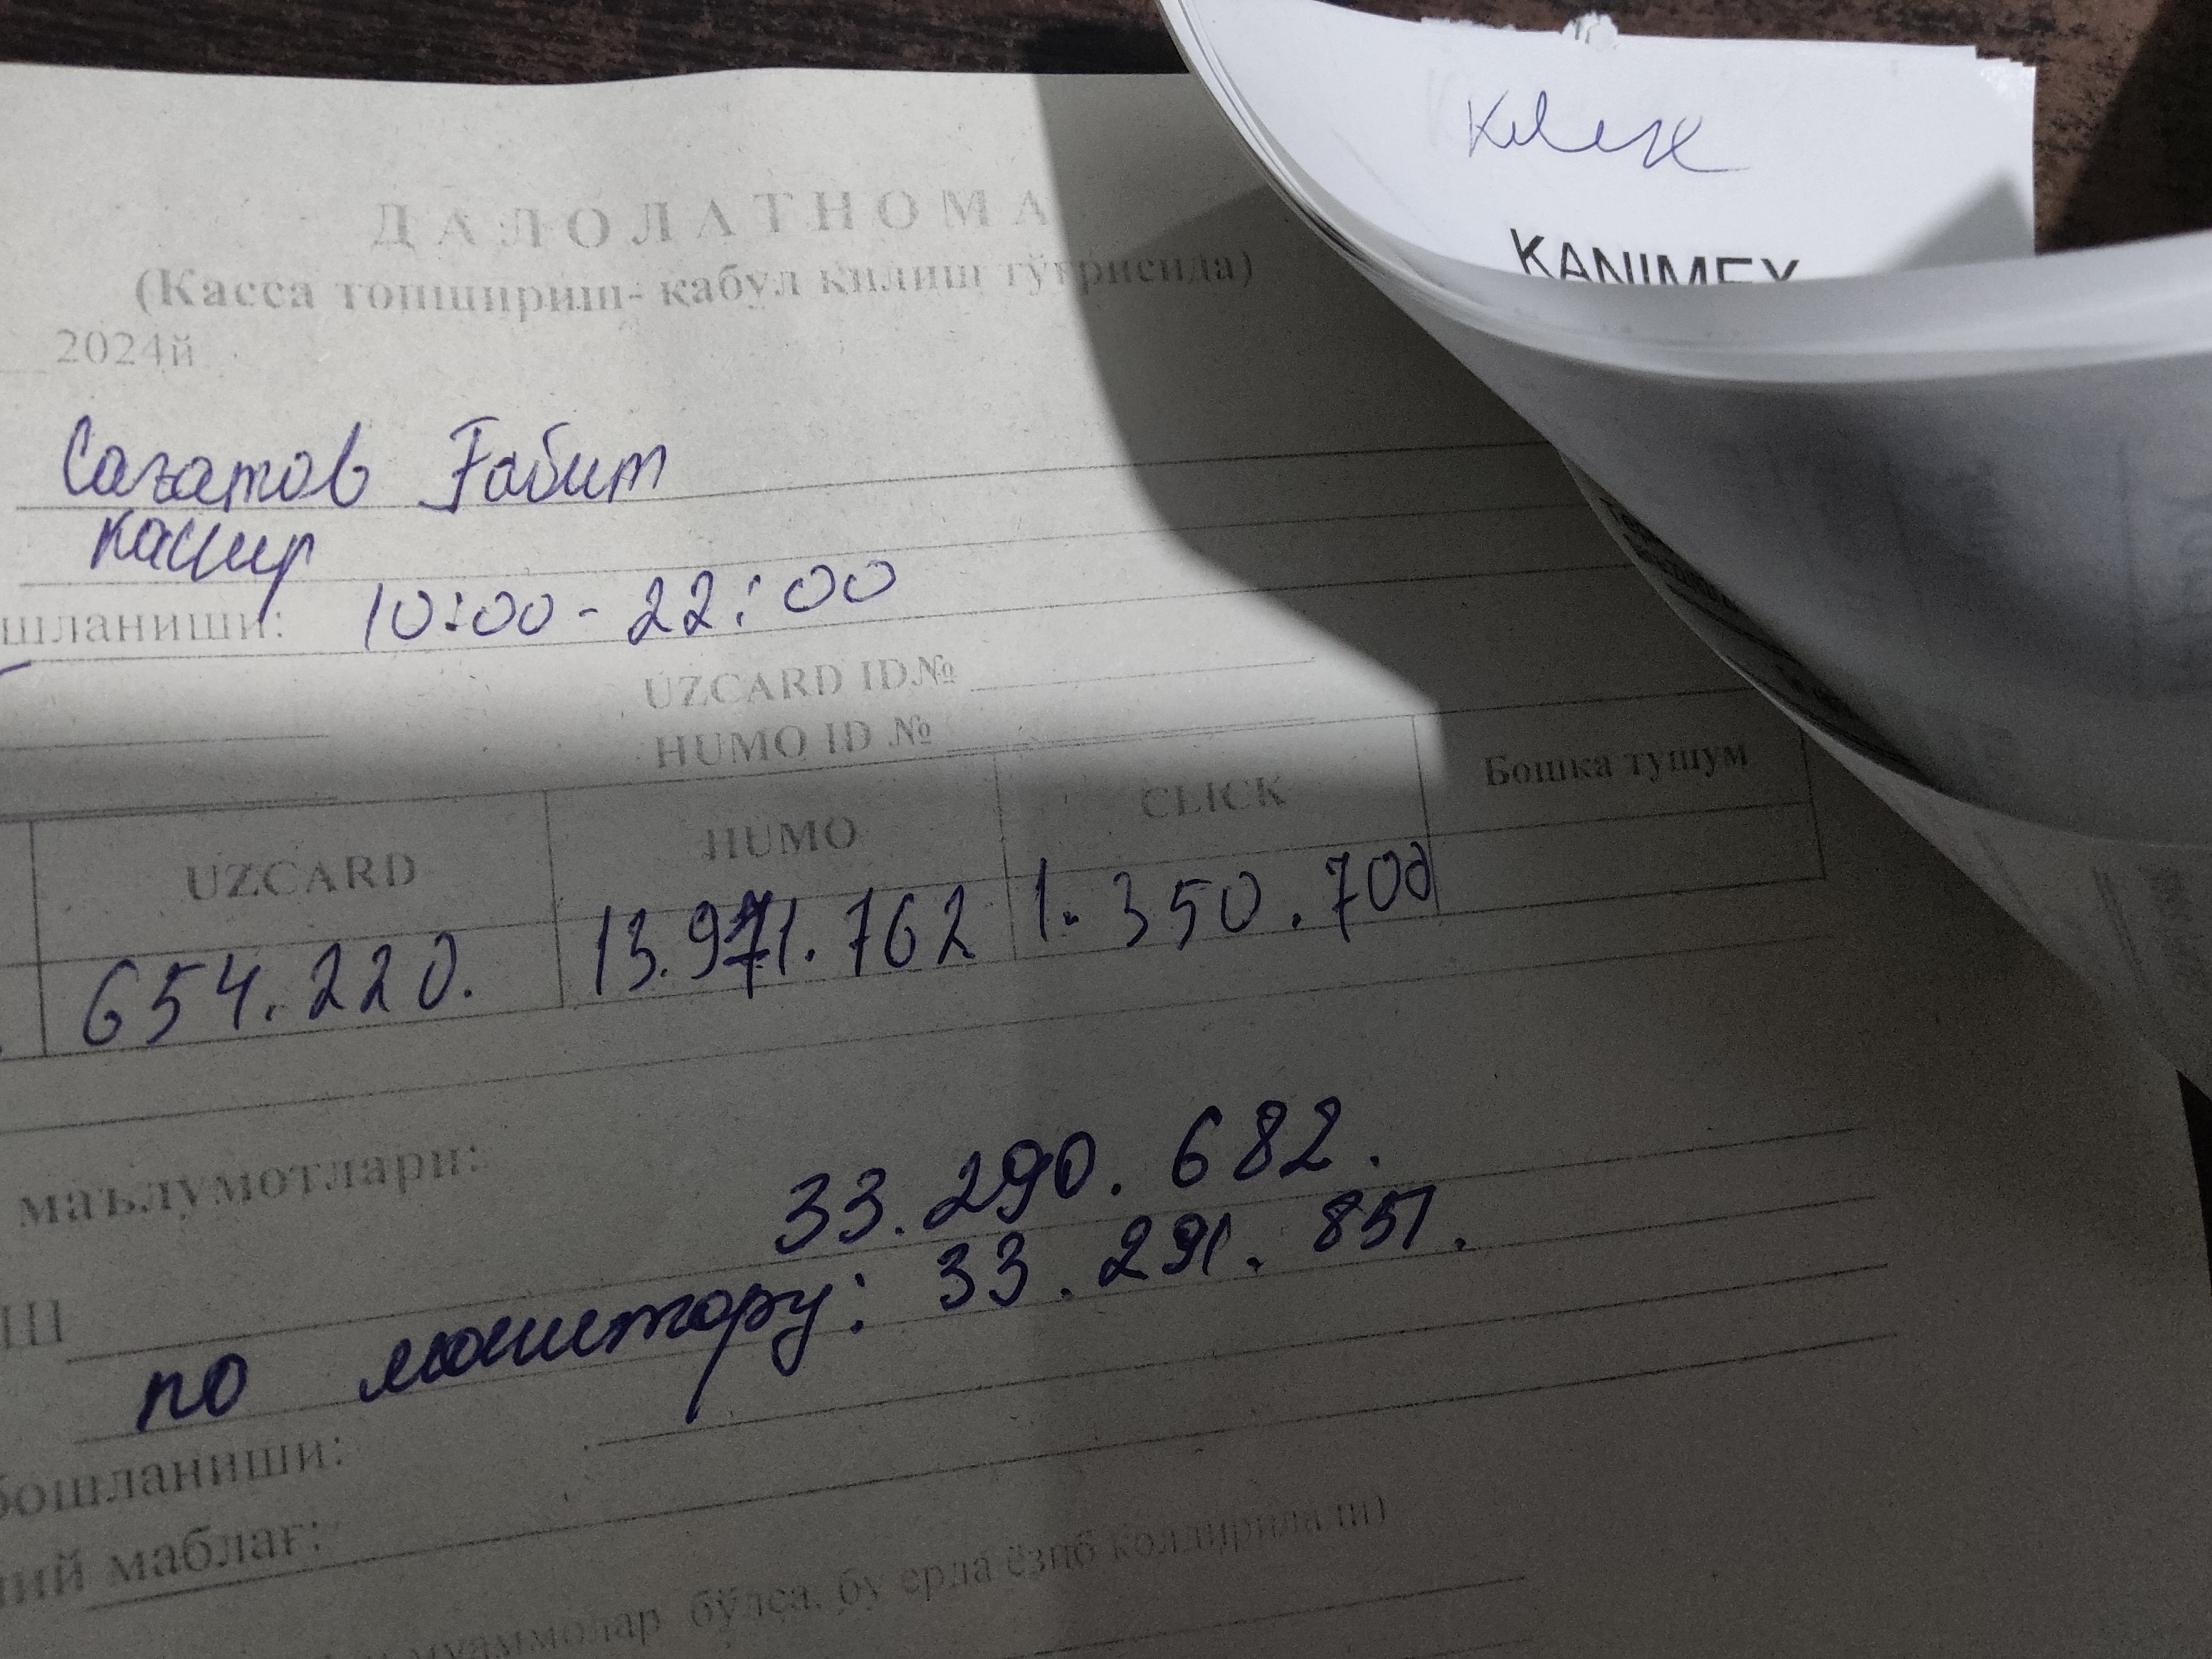 ДАЛОЛАТНОМА
(Касса топшириш- қабул қилиш тўғрисида)
2024й
Сағатов Ғабит
кассир
шланиши: 10:00 - 22:00
UZCARD ID№
HUMO ID №
UZCARD HUMO CLICK Бошка тушум
654.220. 13.971.762 1.350.700
маълумотлари:
33.290.682.
Ш
по монитору: 33.291.851.
бошланиши:
маблағ:
муаммолар бўлса, бу ерда ёзиб колдирилади)
KANIMEX